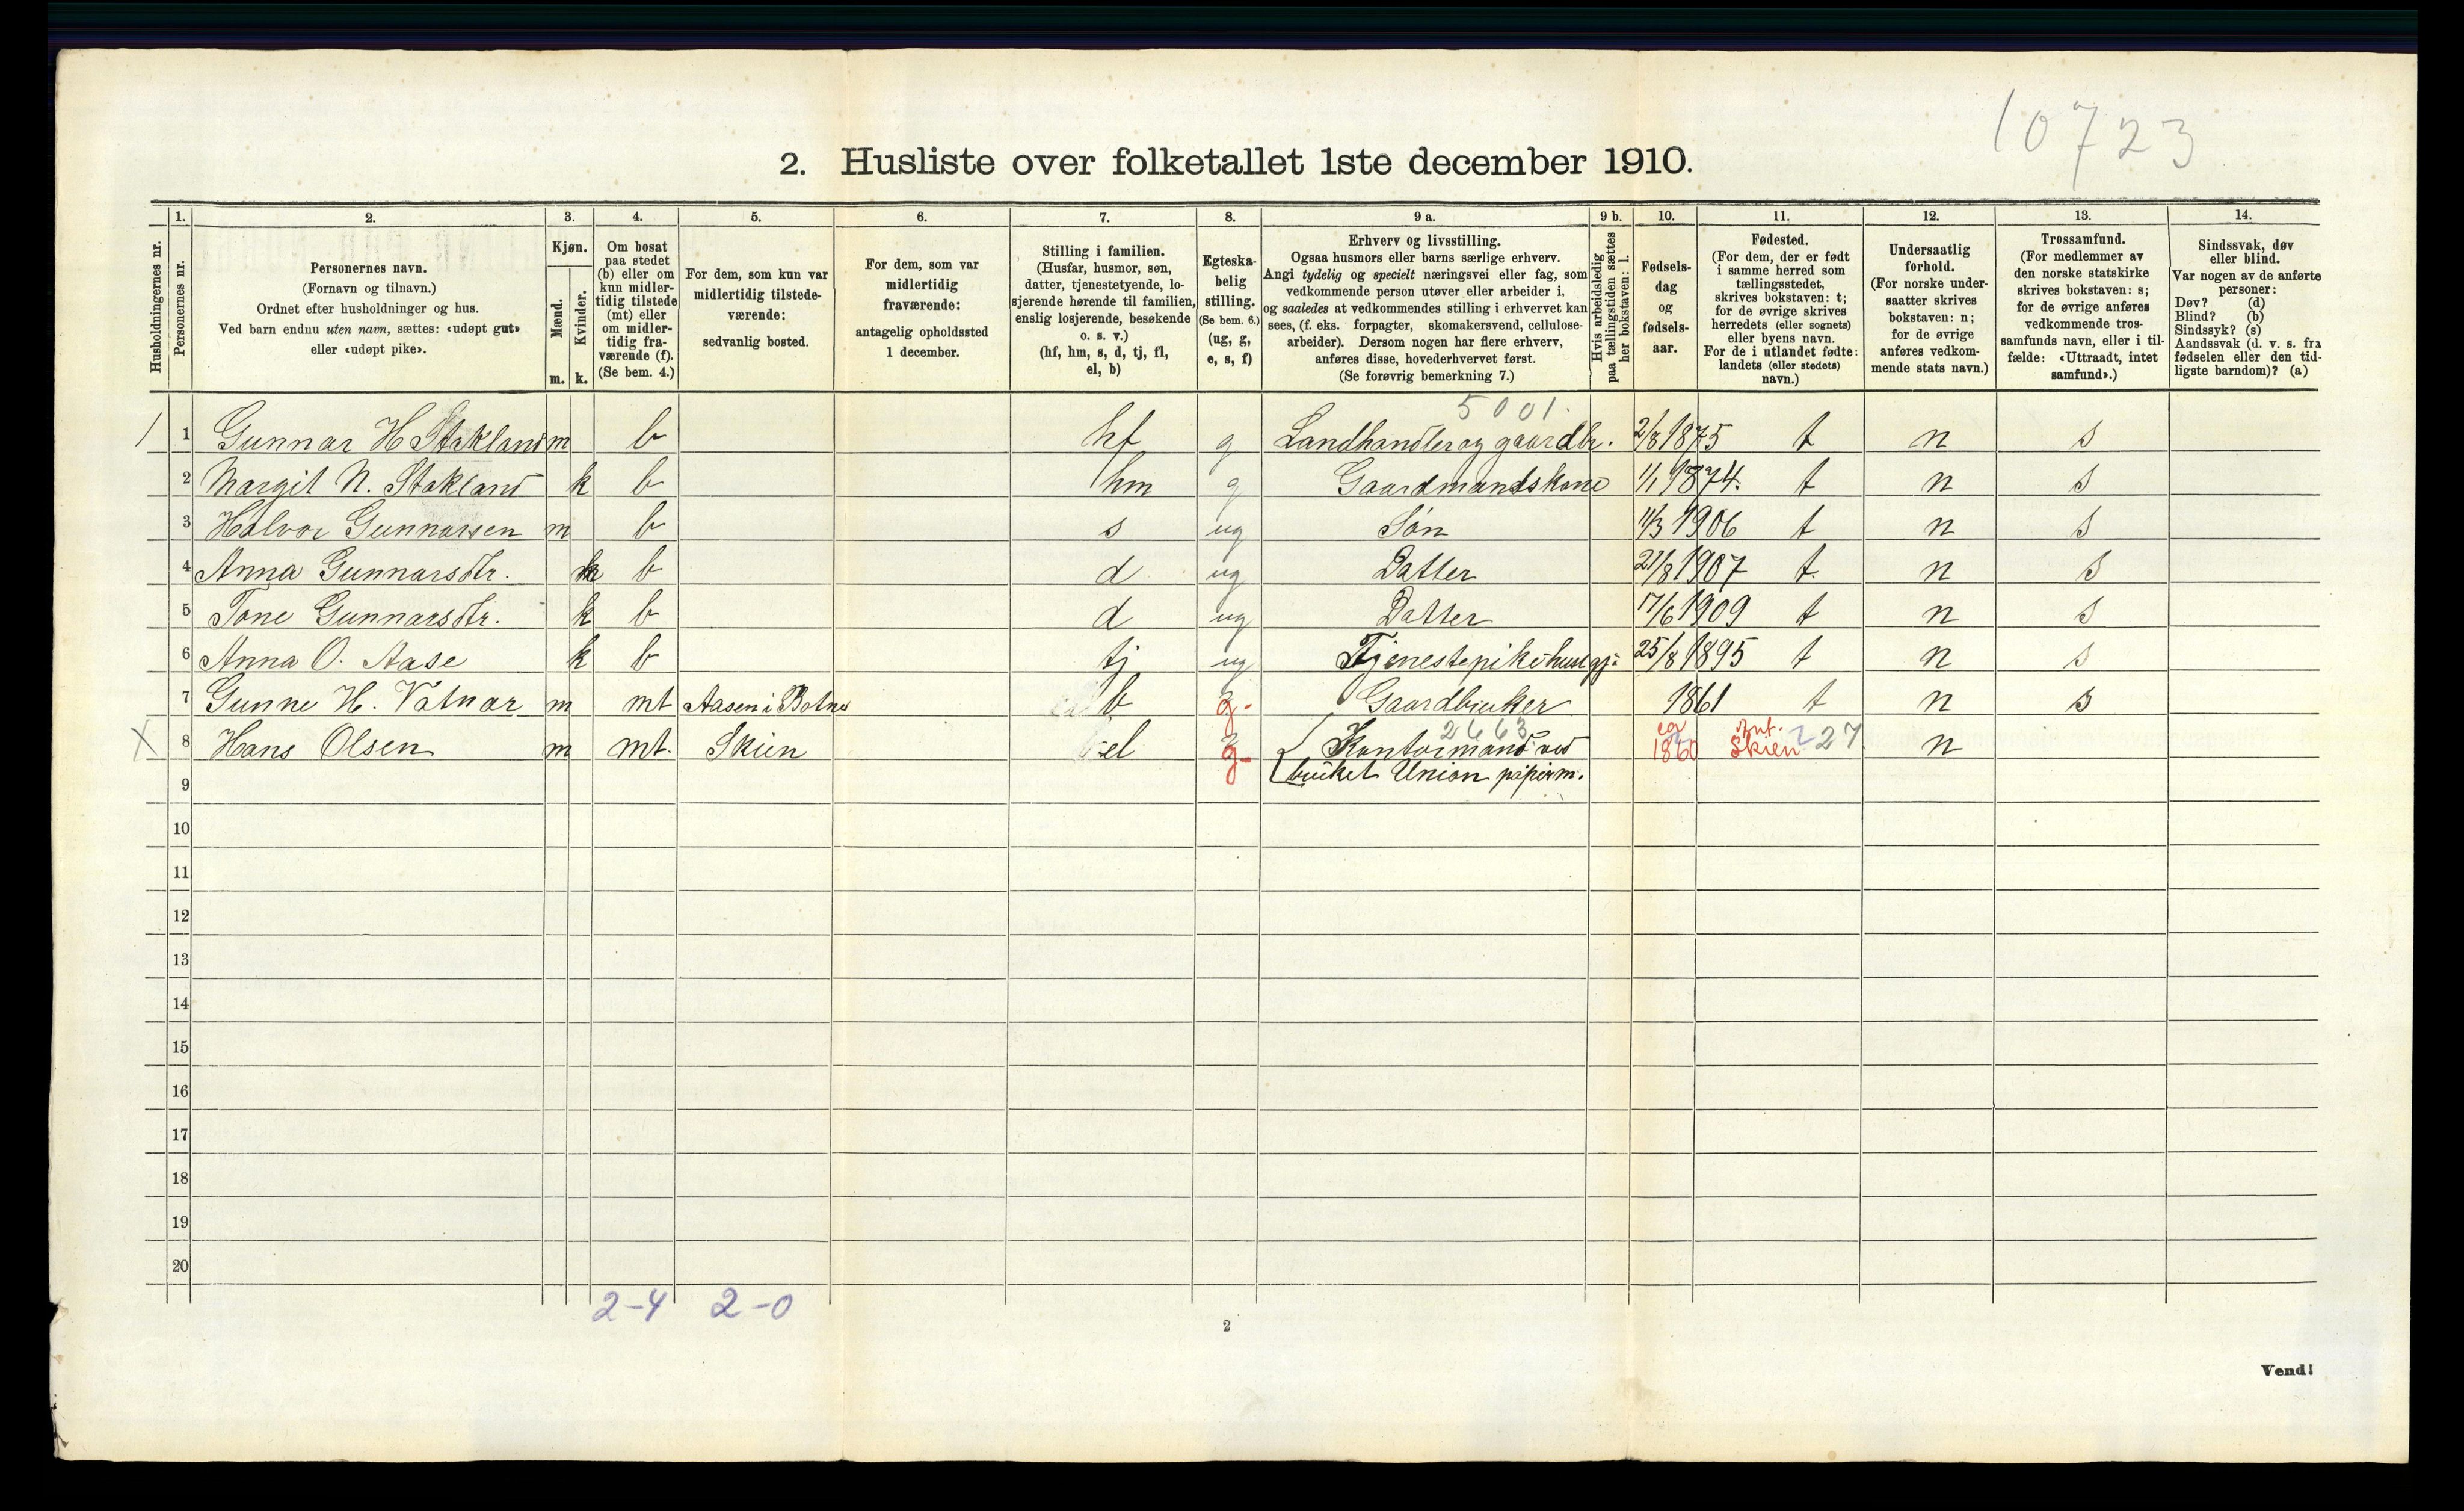 10723
2. Husliste over folketallet 1ste december 1910.
Husholdningernes nr.
1. Personernes nr.
2. Personernes navn.
(Fornavn og tilnavn.)
Ordnet efter husholdninger og hus.
Ved barn endnu uten navn, sættes: «udøpt gut»
eller «udøpt pike».
3. Kjøn.
Mænd. m.
Kvinder. k.
4. Om bosat
paa stedet
(b) eller om
kun midler-
tidig tilstede
(mt) eller
om midler-
tidig fra-
værende (f).
(Se bem. 4.)
5. For dem, som kun var
midlertidig tilstede-
værende:
sedvanlig bosted.
6. For dem, som var
midlertidig
fraværende:
antagelig opholdssted
1 december.
7. Stilling i familien.
(Husfar, husmor, søn,
datter, tjenestetyende, lo-
sjerende hørende til familien,
enslig losjerende, besøkende
o. s. v.)
(hf, hm, s, d, tj, fl,
el, b)
8. Egteska-
belig
stilling.
(Se bem. 6.)
(ug, g,
e, s, f)
9 a. Erhverv og livsstilling.
Ogsaa husmors eller barns særlige erhverv.
Angi tydelig og specielt næringsvei eller fag, som
vedkommende person utøver eller arbeider i,
og saaledes at vedkommendes stilling i erhvervet kan
sees, (f. eks. forpagter, skomakersvend, cellulose-
arbeider). Dersom nogen har flere erhverv,
anføres disse, hovederhvervet først.
(Se forøvrig bemerkning 7.)
9 b. Hvis arbeidsledig
paa tællingstiden sættes
her bokstaven: l.
10. Fødsels-
dag
og
fødsels-
aar.
11. Fødested.
(For dem, der er født
i samme herred som
tællingsstedet,
skrives bokstaven: t;
for de øvrige skrives
herredets (eller sognets)
eller byens navn.
For de i utlandet fødte:
landets (eller stedets)
navn.)
12. Undersaatlig
forhold.
(For norske under-
saatter skrives
bokstaven: n;
for de øvrige
anføres vedkom-
mende stats navn.)
13. Trossamfund.
(For medlemmer av
den norske statskirke
skrives bokstaven: s;
for de øvrige anføres
vedkommende tros-
samfunds navn, eller i til-
fælde: «Uttraadt, intet
samfund».)
14. Sindssvak, døv
eller blind.
Var nogen av de anførte
personer:
Døv? (d)
Blind? (b)
Sindssyk? (s)
Aandssvak (d. v. s. fra
fødselen eller den tid-
ligste barndom)? (a)
5001.
1 1 Gunnar H Stakland m b hf g Landhandler og gaardbr. 2/8 1875 t n s
2 Margit N. Stakland k b hm g Gaardmandskone 1/1 1874. t n s
3 Halvor Gunnarsen m b s ug Søn 11/3 1906 t n s
4 Anna Gunnarsdtr. k b d ug Datter 21/8 1907 t. n s
5 Tone Gunnarsdtr. k b d ug Datter 17/6 1909 t n s
6 Anna O. Aase k b tj ug Tjenestepike husgj. 25/8 1895 t n s
7 Gunne H. Vatnar m mt Aasen i Botne b g. Gaardbruker 1861 t n s
2663
X 8 Hans Olsen m mt. Skien el g. Kontormand ved ca 1860 Ant. Skien 227 n
9 bruket Union papirm.
10
11
12
13
14
15
16
17
18
19
20
2-4 2-0
2
Vend!